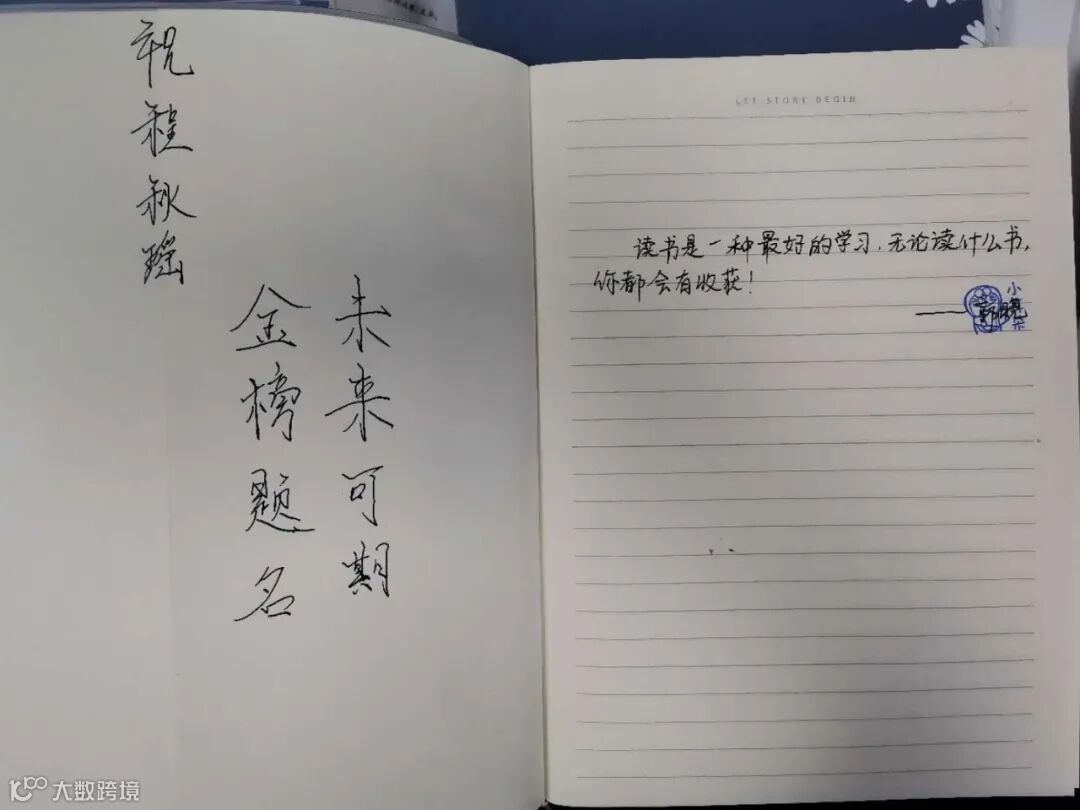 祝程秋瑶
金榜题名
未来可期
LET STORY BEGIN
读书是一种最好的学习，无论读什么书，
你都会有收获！
大数跨境